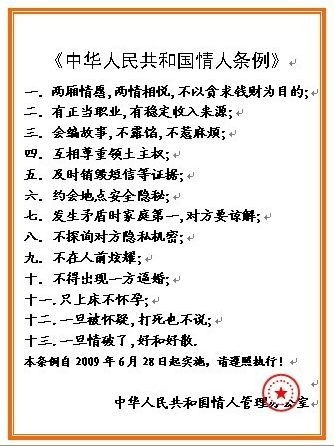 《中华人民共和国情人条例》
一．两厢情愿,两情相悦,不以贪求钱财为目的;
二．有正当职业,有稳定收入来源;
三．会编故事,不露馅,不惹麻烦;
四．互相尊重领土主权;
五．及时销毁短信等证据;
六．约会地点安全隐秘;
七．发生矛盾时家庭第一,对方要谅解;
八．不探询对方隐私机密;
九．不在人前炫耀;
十．不得出现一方逼婚;
十一.只上床不怀孕;
十二.一旦被怀疑,打死也不说;
十三.一旦情破了,好和好散.
本条例自 2009 年 6 月 28 日起实施，请遵照执行!
中华人民共和国情人管理办公室